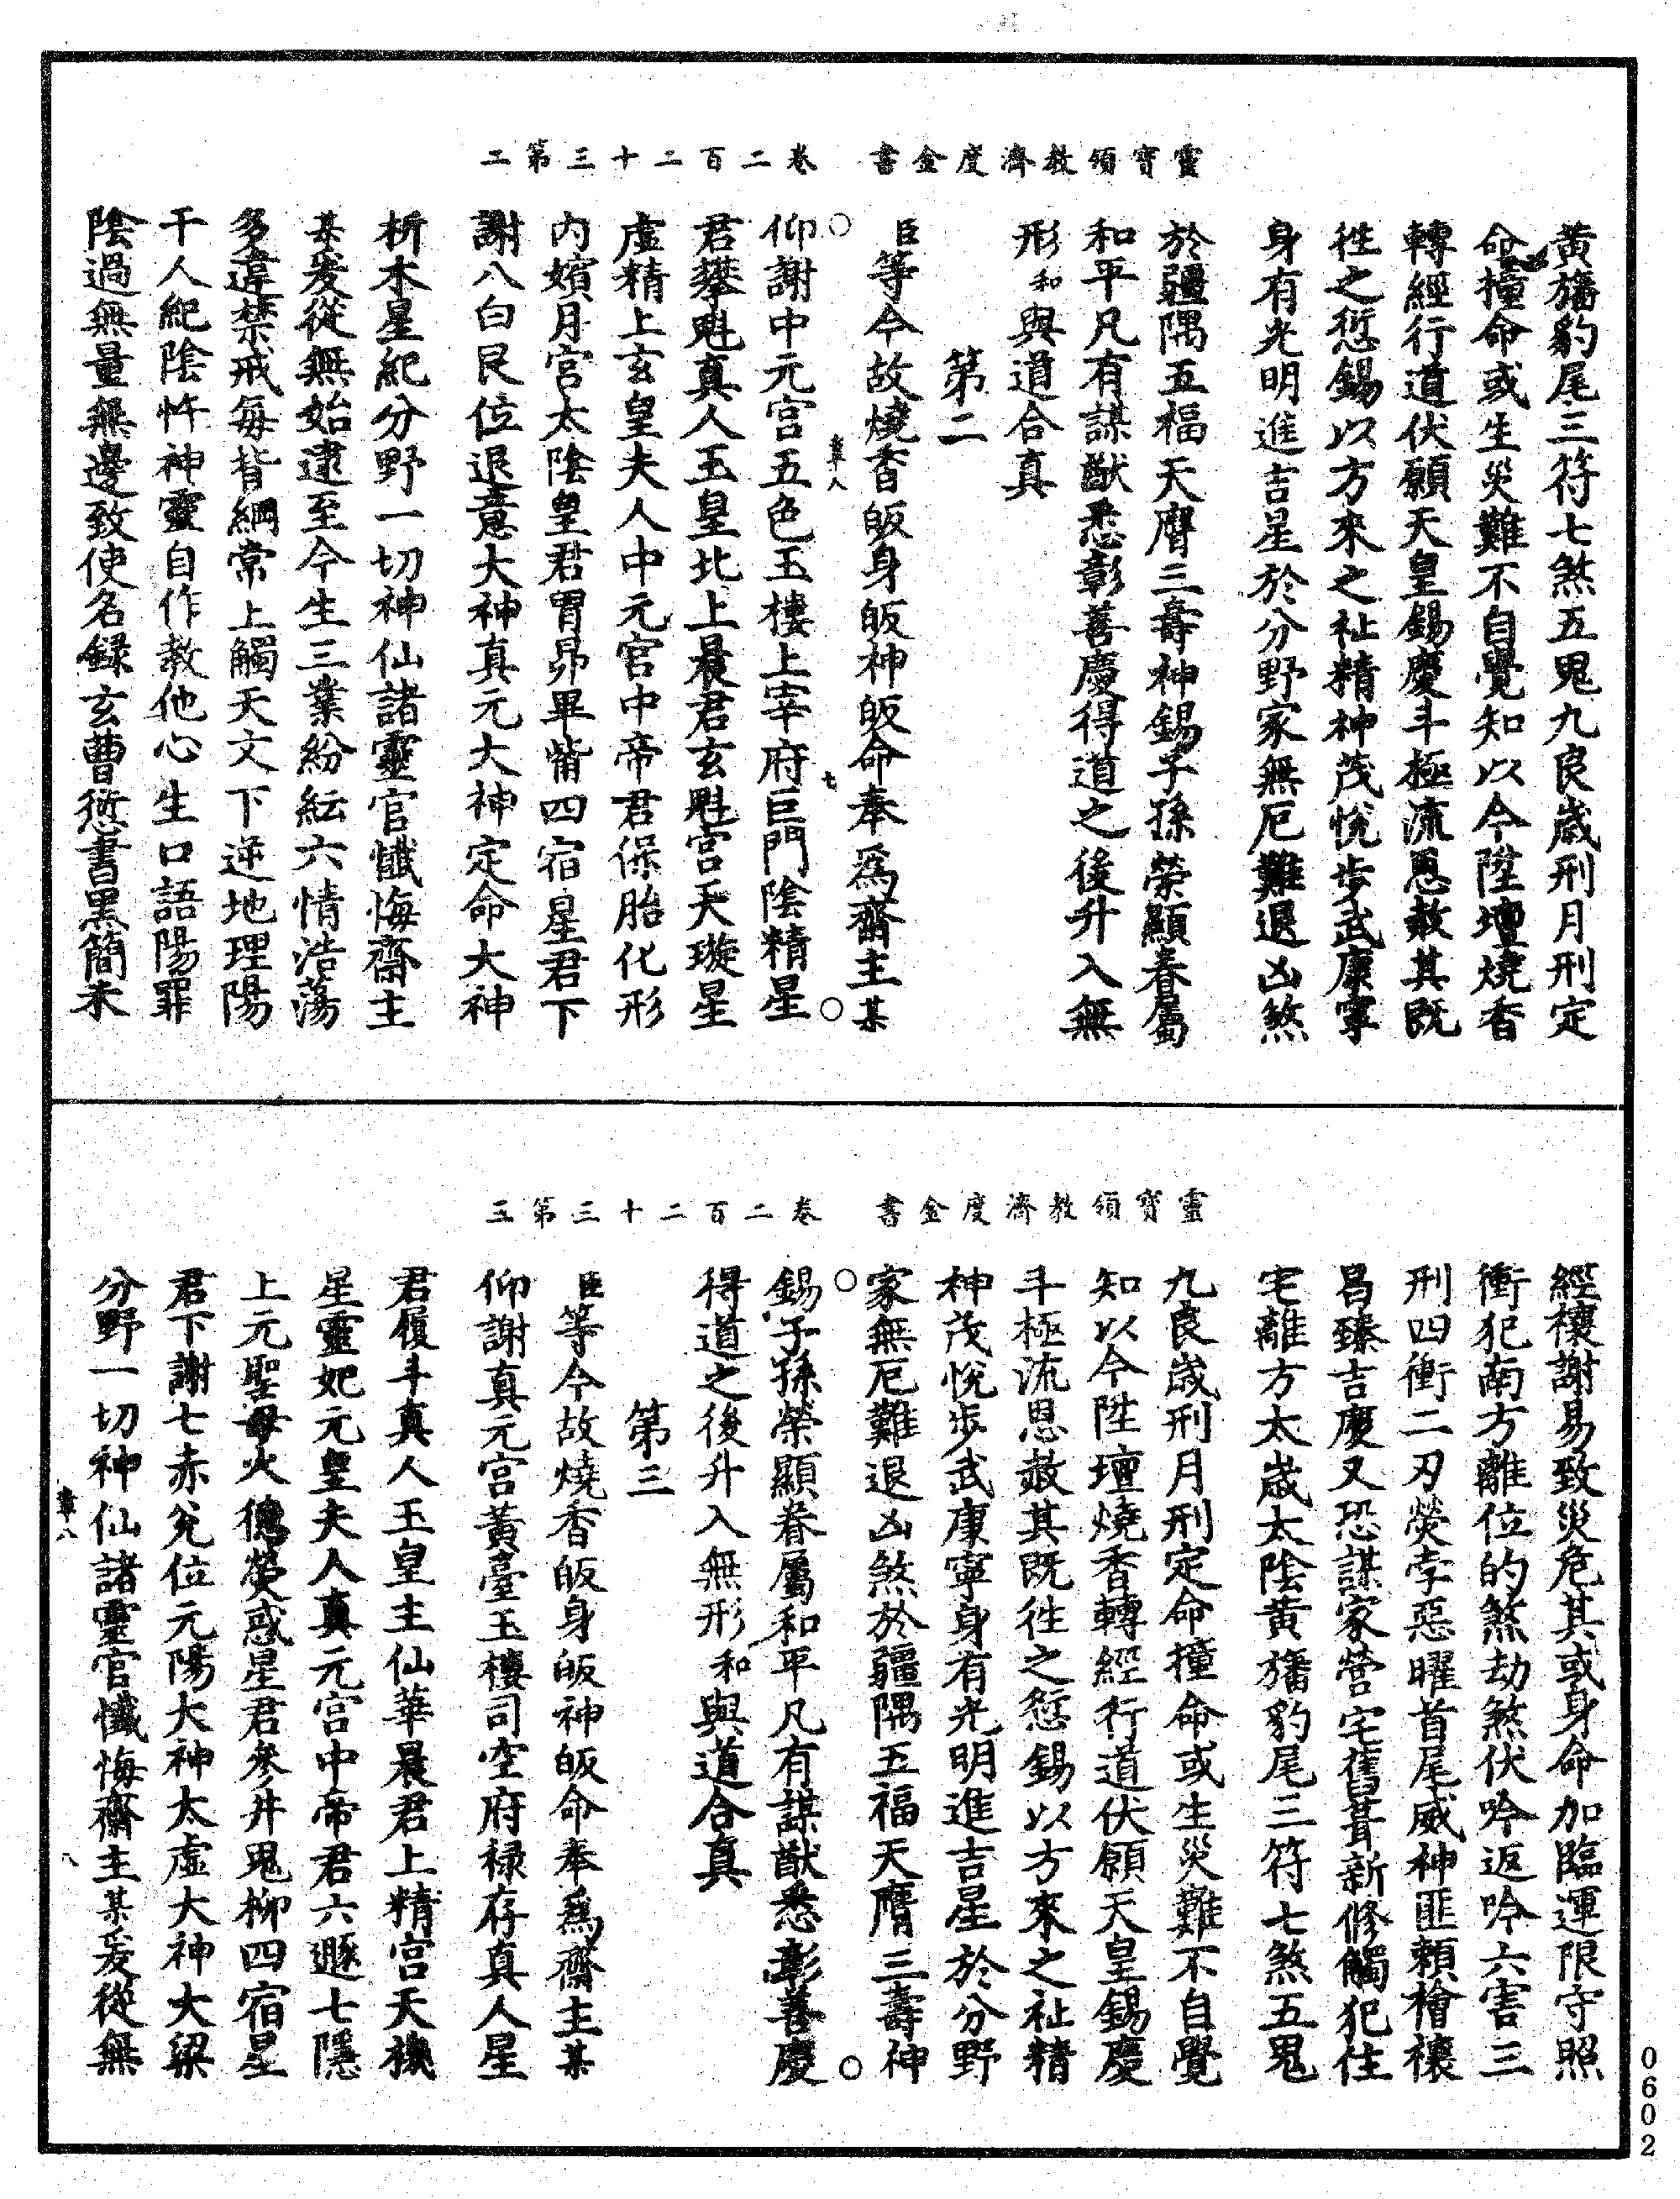 靈寶領教濟度金書　卷二百二十三第二
黃旛豹尾三符七煞五鬼九良歲刑月刑定
命撞命或生災難不自覺知以今陞壇燒香
轉經行道伏願天皇錫慶斗極流恩赦其既
徃之愆錫以方來之祉精神茂悅步武康寧
身有光明進吉星於分野家無厄難退凶煞
於疆隅五福天膺三壽神錫子孫榮顯眷屬
和平凡有謀猷悉彰善慶得道之後升入無
形和與道合真
第二
臣等今故燒香皈身皈神皈命奉爲齋主某
仰謝中元宮五色玉樓上宰府巨門陰精星
君攀魁真人玉皇北上晨君玄魁宮天璇星
虛精上玄皇夫人中元宮中帝君保胎化形
內嬪月宮太陰皇君胃昴畢觜四宿星君下
謝八白艮位退意大神真元大神定命大神
析木星紀分野一切神仙諸靈官懺悔齋主
某爰從無始逮至今生三業紛紜六情浩蕩
多違禁戒每背綱常上觸天文下逆地理陽
干人紀陰忤神靈自作教他心生口語陽罪
陰過無量無邊致使名錄玄曹愆書黑簡未
靈寶領教濟度金書　卷二百二十三第三
經禳謝易致災危其或身命加臨運限守照
衝犯南方離位的煞劫煞伏吟返吟六害三
刑四衝二刃熒孛惡曜首尾威神匪賴禬禳
昌臻吉慶又恐謀家營宅舊葺新修觸犯住
宅離方太歲太陰黃旛豹尾三符七煞五鬼
九良歲刑月刑定命撞命或生災難不自覺
知以今陞壇燒香轉經行道伏願天皇錫慶
斗極流恩赦其既徃之愆錫以方來之祉精
神茂悅步武康寧身有光明進吉星於分野
家無厄難退凶煞於疆隅五福天膺三壽神
錫子孫榮顯眷屬和平凡有謀猷悉彰善慶
得道之後升入無形和與道合真
第三
臣等今故燒香皈身皈神皈命奉爲齋主某
仰謝真元宮黃臺玉樓司空府祿存真人星
君履斗真人玉皇主仙華晨君上精宮天機
星靈妃元皇夫人真元宮中帝君六遯七隱
上元聖母火德熒惑星君參井鬼柳四宿星
君下謝七赤兌位元陽大神太虛大神大梁
分野一切神仙諸靈官懺悔齋主某爰從無
0602